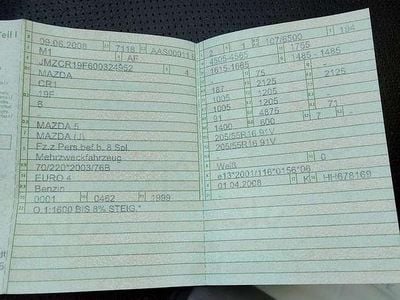 Teil I
09.06.2008 7118 AAS00011
M1 AF
JMZCR19F600324952 4
MAZDA
CR1
19F
8
MAZDA 5
MAZDA (J)
Fz.z.Pers.bef.b. 8 Spl.
Mehrzweckfahrzeug
70/220*2003/76B
EURO 4
Benzin
0001 0462 1999
O.1:1600 BIS 8% STEIG.*
2 107/6500 194
4505-4565 1755
1615-1665 1485-1485
75
187 2125 2125
1005 1205 1205
91 4875 71
1400 600 7
205/55R16 91V
205/55R16 91V
Weiß 0
e13*2001/116*0156*06
01.04.2008 K HH678169